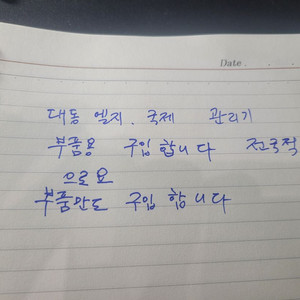 Date . . .
대동 엘지. 국제 관리기
부품용 구입합니다 전국적
으로요
부품만도 구입 합니다